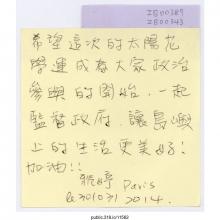 IE00387
IE00343
希望這次的太陽花
學運成為大家政治
參與的開始，一起
監督政府，讓島嶼
上的生活更美好！
加油!!
Paris
2014.
public.318.io/11563